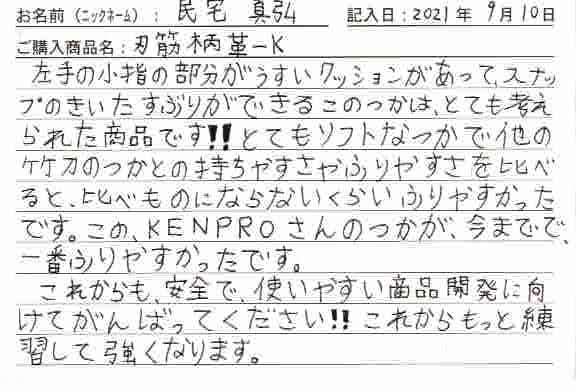 お名前（ニックネーム）： 民宅 真弘 記入日：2021年 9月10日
ご購入商品名：刃筋柄革ーK
左手の小指の部分がうすいクッションがあって、スナッ
プのきいたすぶりができるこのつかは、とても考え
られた商品です!!とてもソフトなつかで他の
竹刀のつかとの持ちやすさやふりやすさを比べ
ると、比べものにならないくらいふりやすかった
です。この、KENPROさんのつかが、今までで、
一番ふりやすかったです。
これからも、安全で、使いやすい商品開発に向
けてがんばってください!!これからもっと練
習して強くなります。